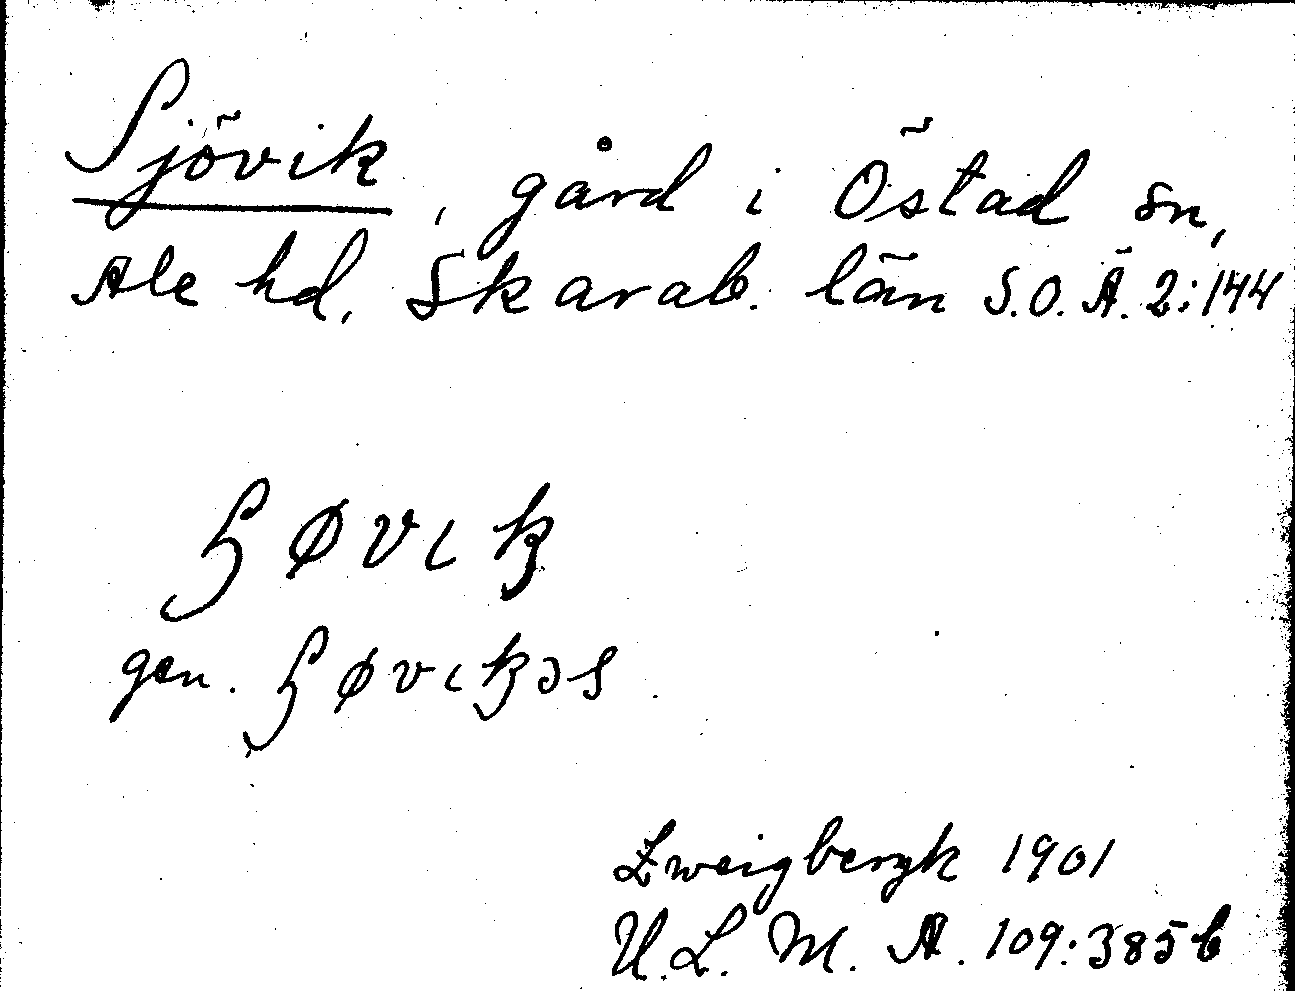 Sjövik, gård i Östad sn,
Ale hd, Skarab. län S.O.Ä. 2:144
ʃøvɩk
gen. ʃøvɩkəs
Zweigbergk 1901
U.L.M.A. 109:385b